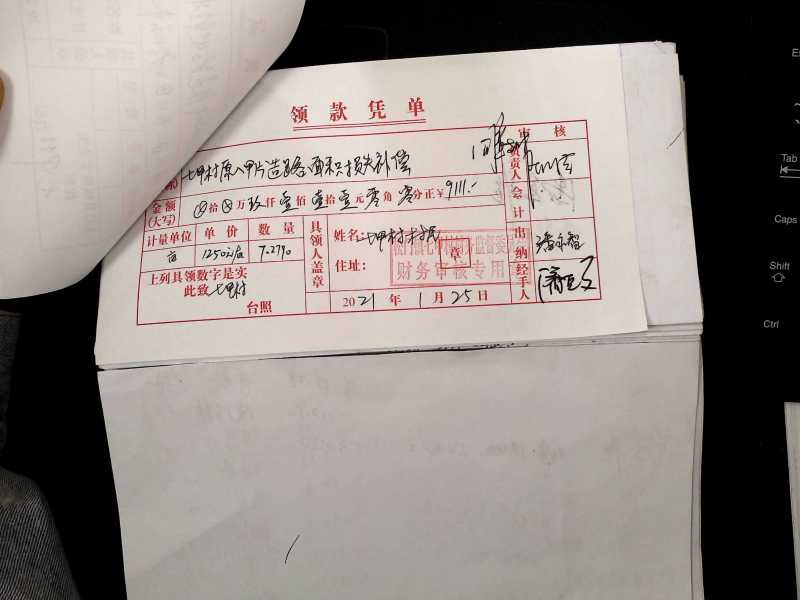 领款凭单
审核
七甲村原八甲片造路面积损失补偿
负责人
金额(大写) ⊗拾⊗万玖仟壹佰壹拾壹元零角零分正¥9111.-
会计
计量单位 单价 数量
亩 1250元/亩 7.2790
具领人盖章
姓名: 七甲村村民
住址:
章
财务审核专用
出纳
经手人
上列具领数字是实
此致 七甲村
台照
2021年1月25日
Tab
Caps
Shift
Ctrl